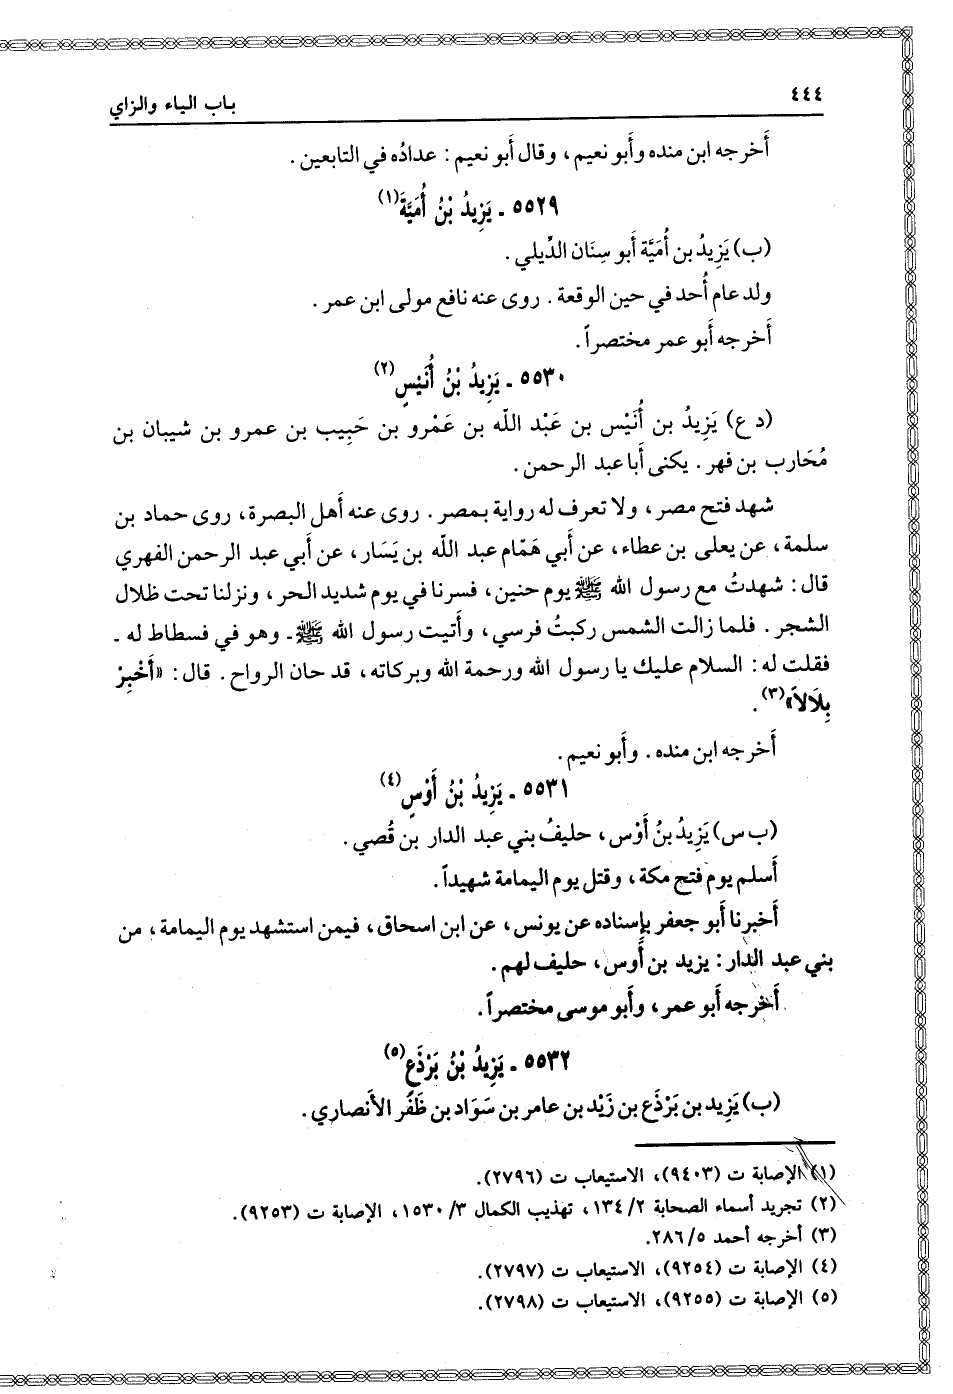 ٤٤٤
باب الياء والزاي
أَخرجه ابن منده وأَبو نعيم، وقال أَبو نعيم: عدادُه في التابعين.
٥٥٢٩ ـ يَزِيدُ بْنُ أُمَيَّةَ(١)
(ب) يَزِيدُ بن أُمَيَّة أَبو سِنَان الدِّيلي.
ولد عام أُحد في حين الوقعة. روى عنه نافع مولى ابن عمر.
أَخرجه أَبو عمر مختصراً.
٥٥٣٠ ـ يَزِيدُ بْنُ أُنَيْسٍ(٢)
(د ع) يَزِيدُ بن أُنَيْس بن عَبْد اللّه بن عَمْرو بن حَبِيب بن عمرو بن شيبان بن
مُحَارب بن فهر. يكنى أَبا عبد الرحمن.
شهد فتح مصر، ولا تعرف له رواية بمصر. روى عنه أَهل البصرة، روى حماد بن
سلمة، عن يعلى بن عطاء، عن أَبي هَمَّام عبد اللّه بن يَسَار، عن أَبي عبد الرحمن الفهري
قال: شهدتُ مع رسول اللّه ﷺ يوم حنين، فسرنا في يوم شديد الحر، ونزلنا تحت ظلال
الشجر. فلما زالت الشمس ركبتُ فرسي، وأَتيت رسول اللّه ﷺ ـ وهو في فسطاط له ـ
فقلت له: السلام عليك يا رسول اللّه ورحمة اللّه وبركاته، قد حان الرواح. قال: «أَخْبِرْ
بِلَالاً»(٣).
أَخرجه ابن منده. وأَبو نعيم.
٥٥٣١ ـ يَزِيدُ بْنُ أَوْسٍ(٤)
(ب س) يَزِيدُ بنُ أَوْس، حليفُ بني عبد الدار بن قُصي.
أَسلم يوم فتح مكة، وقتل يوم اليمامة شهيداً.
أَخبرنا أَبو جعفر بإسناده عن يونس، عن ابن اسحاق، فيمن استشهد يوم اليمامة، من
بني عبد الدار: يزيد بن أَوس، حليف لهم.
أَخرجه أَبو عمر، وأَبو موسى مختصراً.
٥٥٣٢ ـ يَزِيدُ بْنُ بَرْذَعٍ(٥)
(ب) يَزِيد بن بَرْذَع بن زَيْد بن عامر بن سَوَاد بن ظَفَر الأَنصاري.
(١) الإصابة ت (٩٤٠٣)، الاستيعاب ت (٢٧٩٦).
(٢) تجريد أسماء الصحابة ١٣٤/٢، تهذيب الكمال ١٥٣٠/٣، الإصابة ت (٩٢٥٣).
(٣) أخرجه أحمد ٢٨٦/٥.
(٤) الإصابة ت (٩٢٥٤)، الاستيعاب ت (٢٧٩٧).
(٥) الإصابة ت (٩٢٥٥)، الاستيعاب ت (٢٧٩٨).